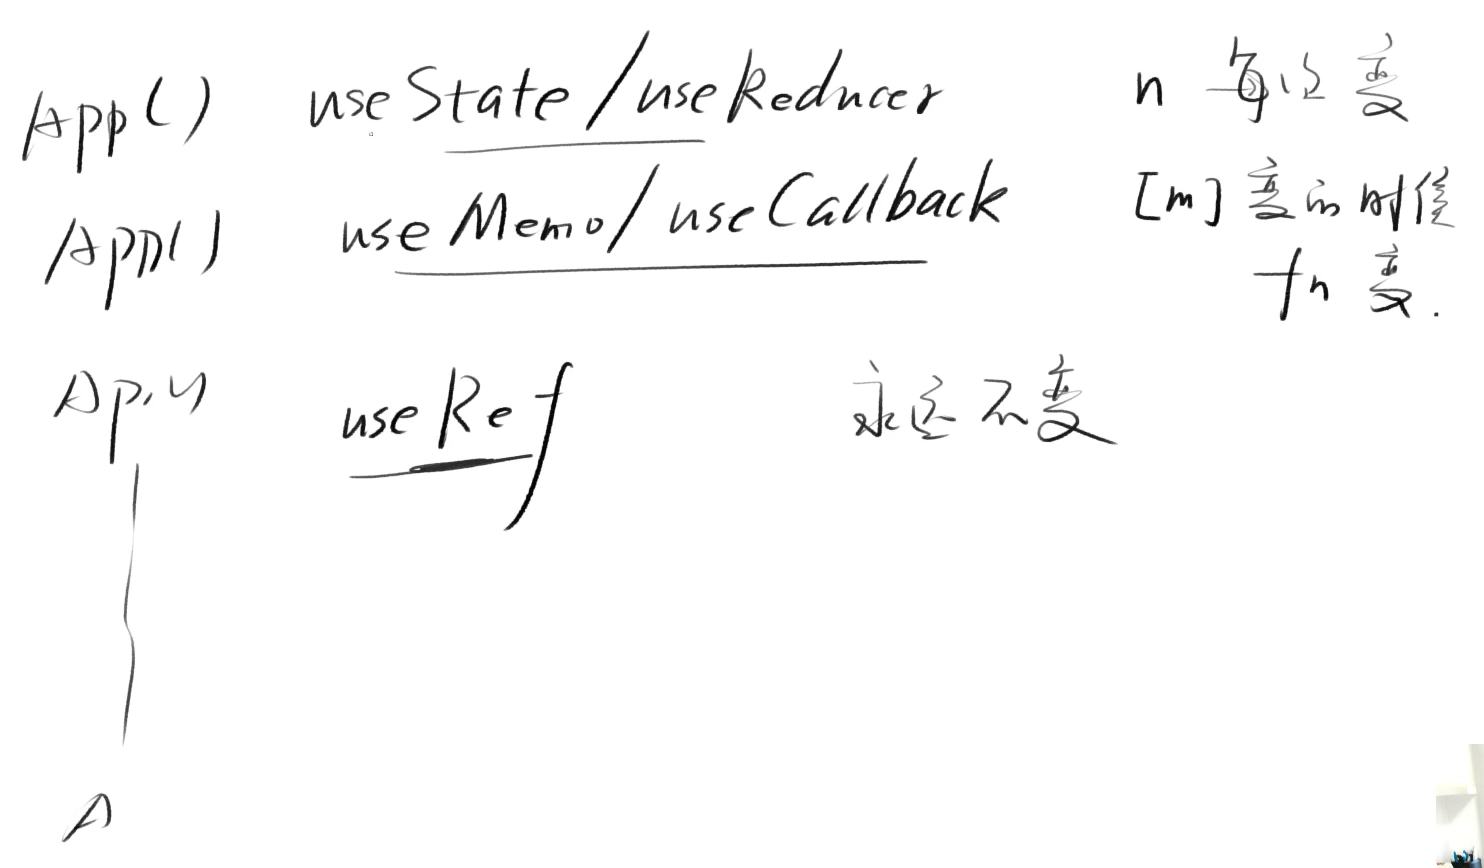 App() useState/useReducer n 每次变
App() useMemo/useCallback [m] 变的时候
fn 变.
App() useRef 永远不变
A